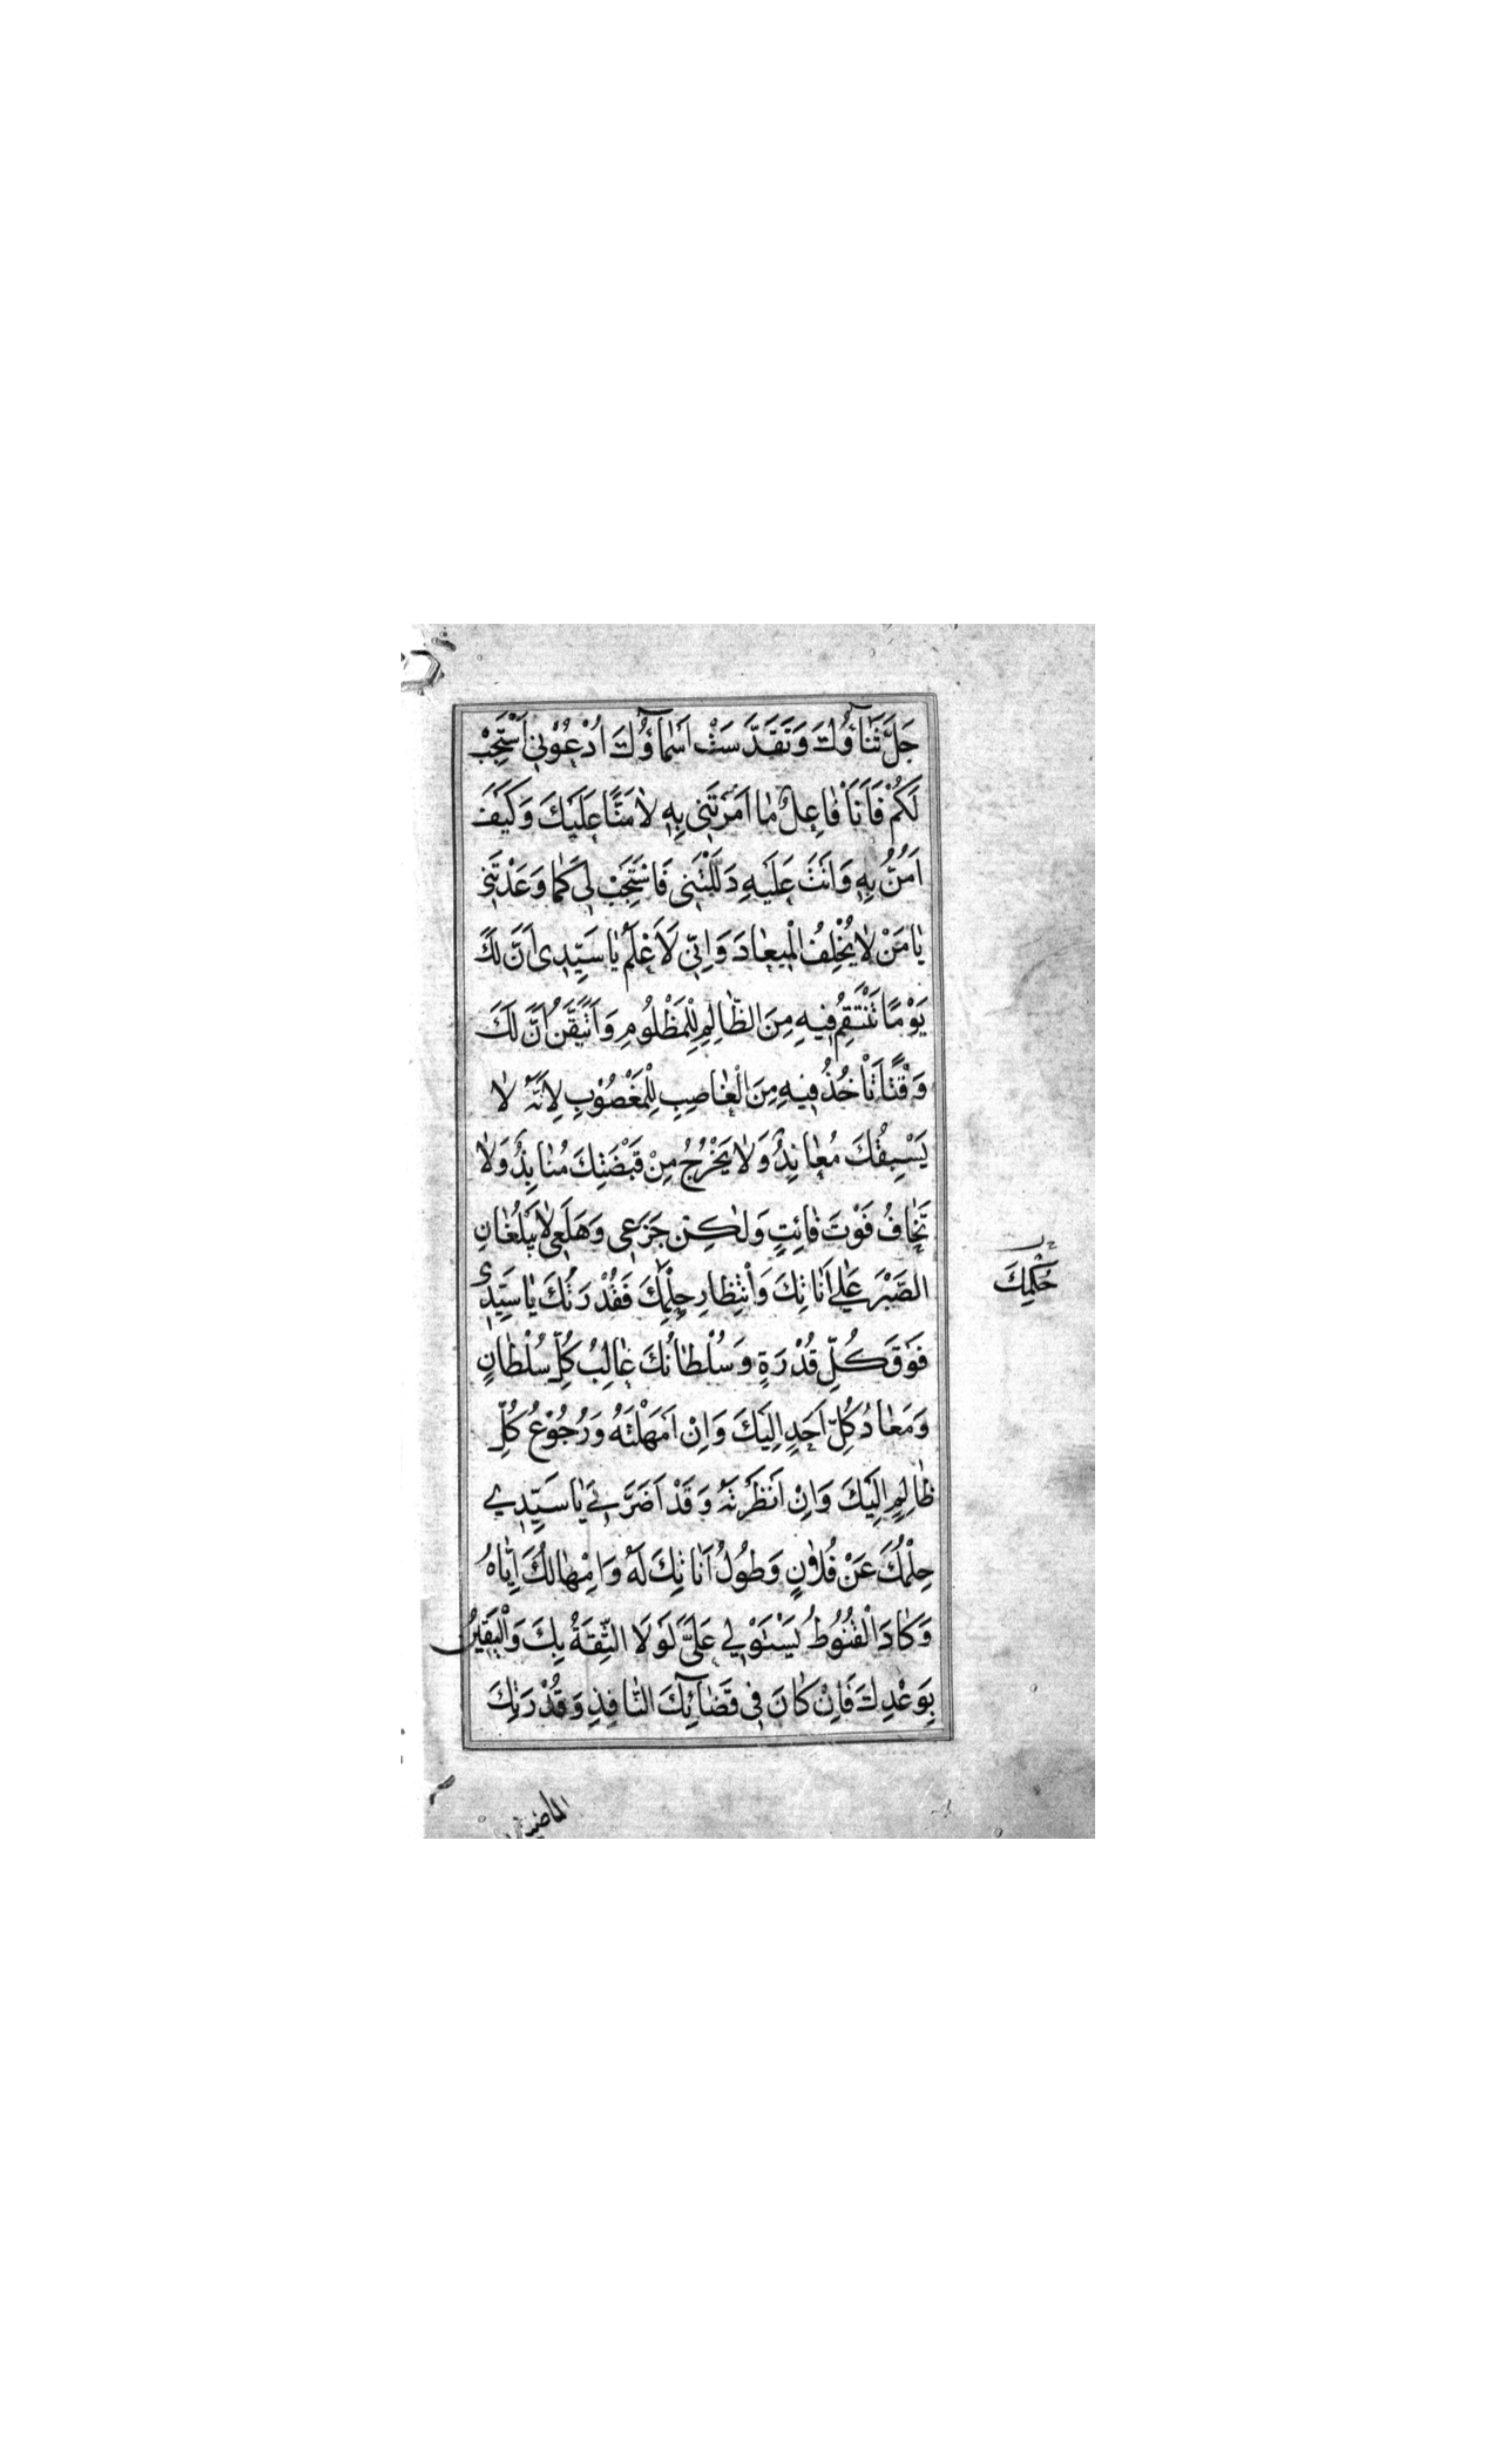 جَلَّ ثَنَآؤُكَ وَتَقَدَّسَتْ اَسْمَآؤُكَ اُدْعُوْنِىْ اَسْتَجِبْ
لَكُمْ فَاَنَا فَاعِلٌ مَا اَمَرْتَنِى بِهِ لَا مَنًّا عَلَيْكَ وَكَيْفَ
اَمُنُّ بِهِ وَاَنْتَ عَلَيْهِ دَلَلْتَنِى فَاسْتَجِبْ لِى كَمَا وَعَدْتَنِى
يَا مَنْ لَا يُخْلِفُ الْمِيعَادَ وَاِنِّى لَاَعْلَمُ يَا سَيِّدِى اَنَّ لَكَ
يَوْمًا تَنْتَقِمُ فِيهِ مِنَ الظَّالِمِ لِلْمَظْلُومِ وَاَتَيَقَّنُ اَنَّ لَكَ
وَقْتًا تَاْخُذُ فِيهِ مِنَ الْغَاصِبِ لِلْمَغْصُوْبِ لِاَنَّهُ لَا
يَسْبِقُكَ مُعَانِدٌ وَلَا يَخْرُجُ مِنْ قَبْضَتِكَ مُنَابِذٌ وَلَا
تَخَافُ فَوْتَ فَائِتٍ وَلٰكِنْ جَزَعِى وَهَلَعِى لَا يَبْلُغَانِ
الصَّبْرَ عَلٰى اَنَاتِكَ وَانْتِظَارِ حِلْمِكَ فَقُدْرَتُكَ يَا سَيِّدِى
حُكْمِكَ
فَوْقَ كُلِّ قُدْرَةٍ وَسُلْطَانُكَ غَالِبُ كُلِّ سُلْطَانٍ
وَمَعَادُ كُلِّ اَحَدٍ اِلَيْكَ وَاِنْ اَمْهَلْتَهُ وَرُجُوْعُ كُلِّ
ظَالِمٍ اِلَيْكَ وَاِنْ اَنْظَرْتَهُ وَقَدْ اَضَرَّ بِى يَا سَيِّدِى
حِلْمُكَ عَنْ فُلَانٍ وَطُولُ اَنَاتِكَ لَهُ وَاِمْهَالُكَ اِيَّاهُ
وَكَادَ الْقُنُوْطُ يَسْتَوْلِى عَلَىَّ لَوْلَا الثِّقَةُ بِكَ وَالْيَقِيْنُ
بِوَعْدِكَ فَاِنْ كَانَ فِى قَضَآئِكَ النَّافِذِ وَقُدْرَتِكَ
الماضية